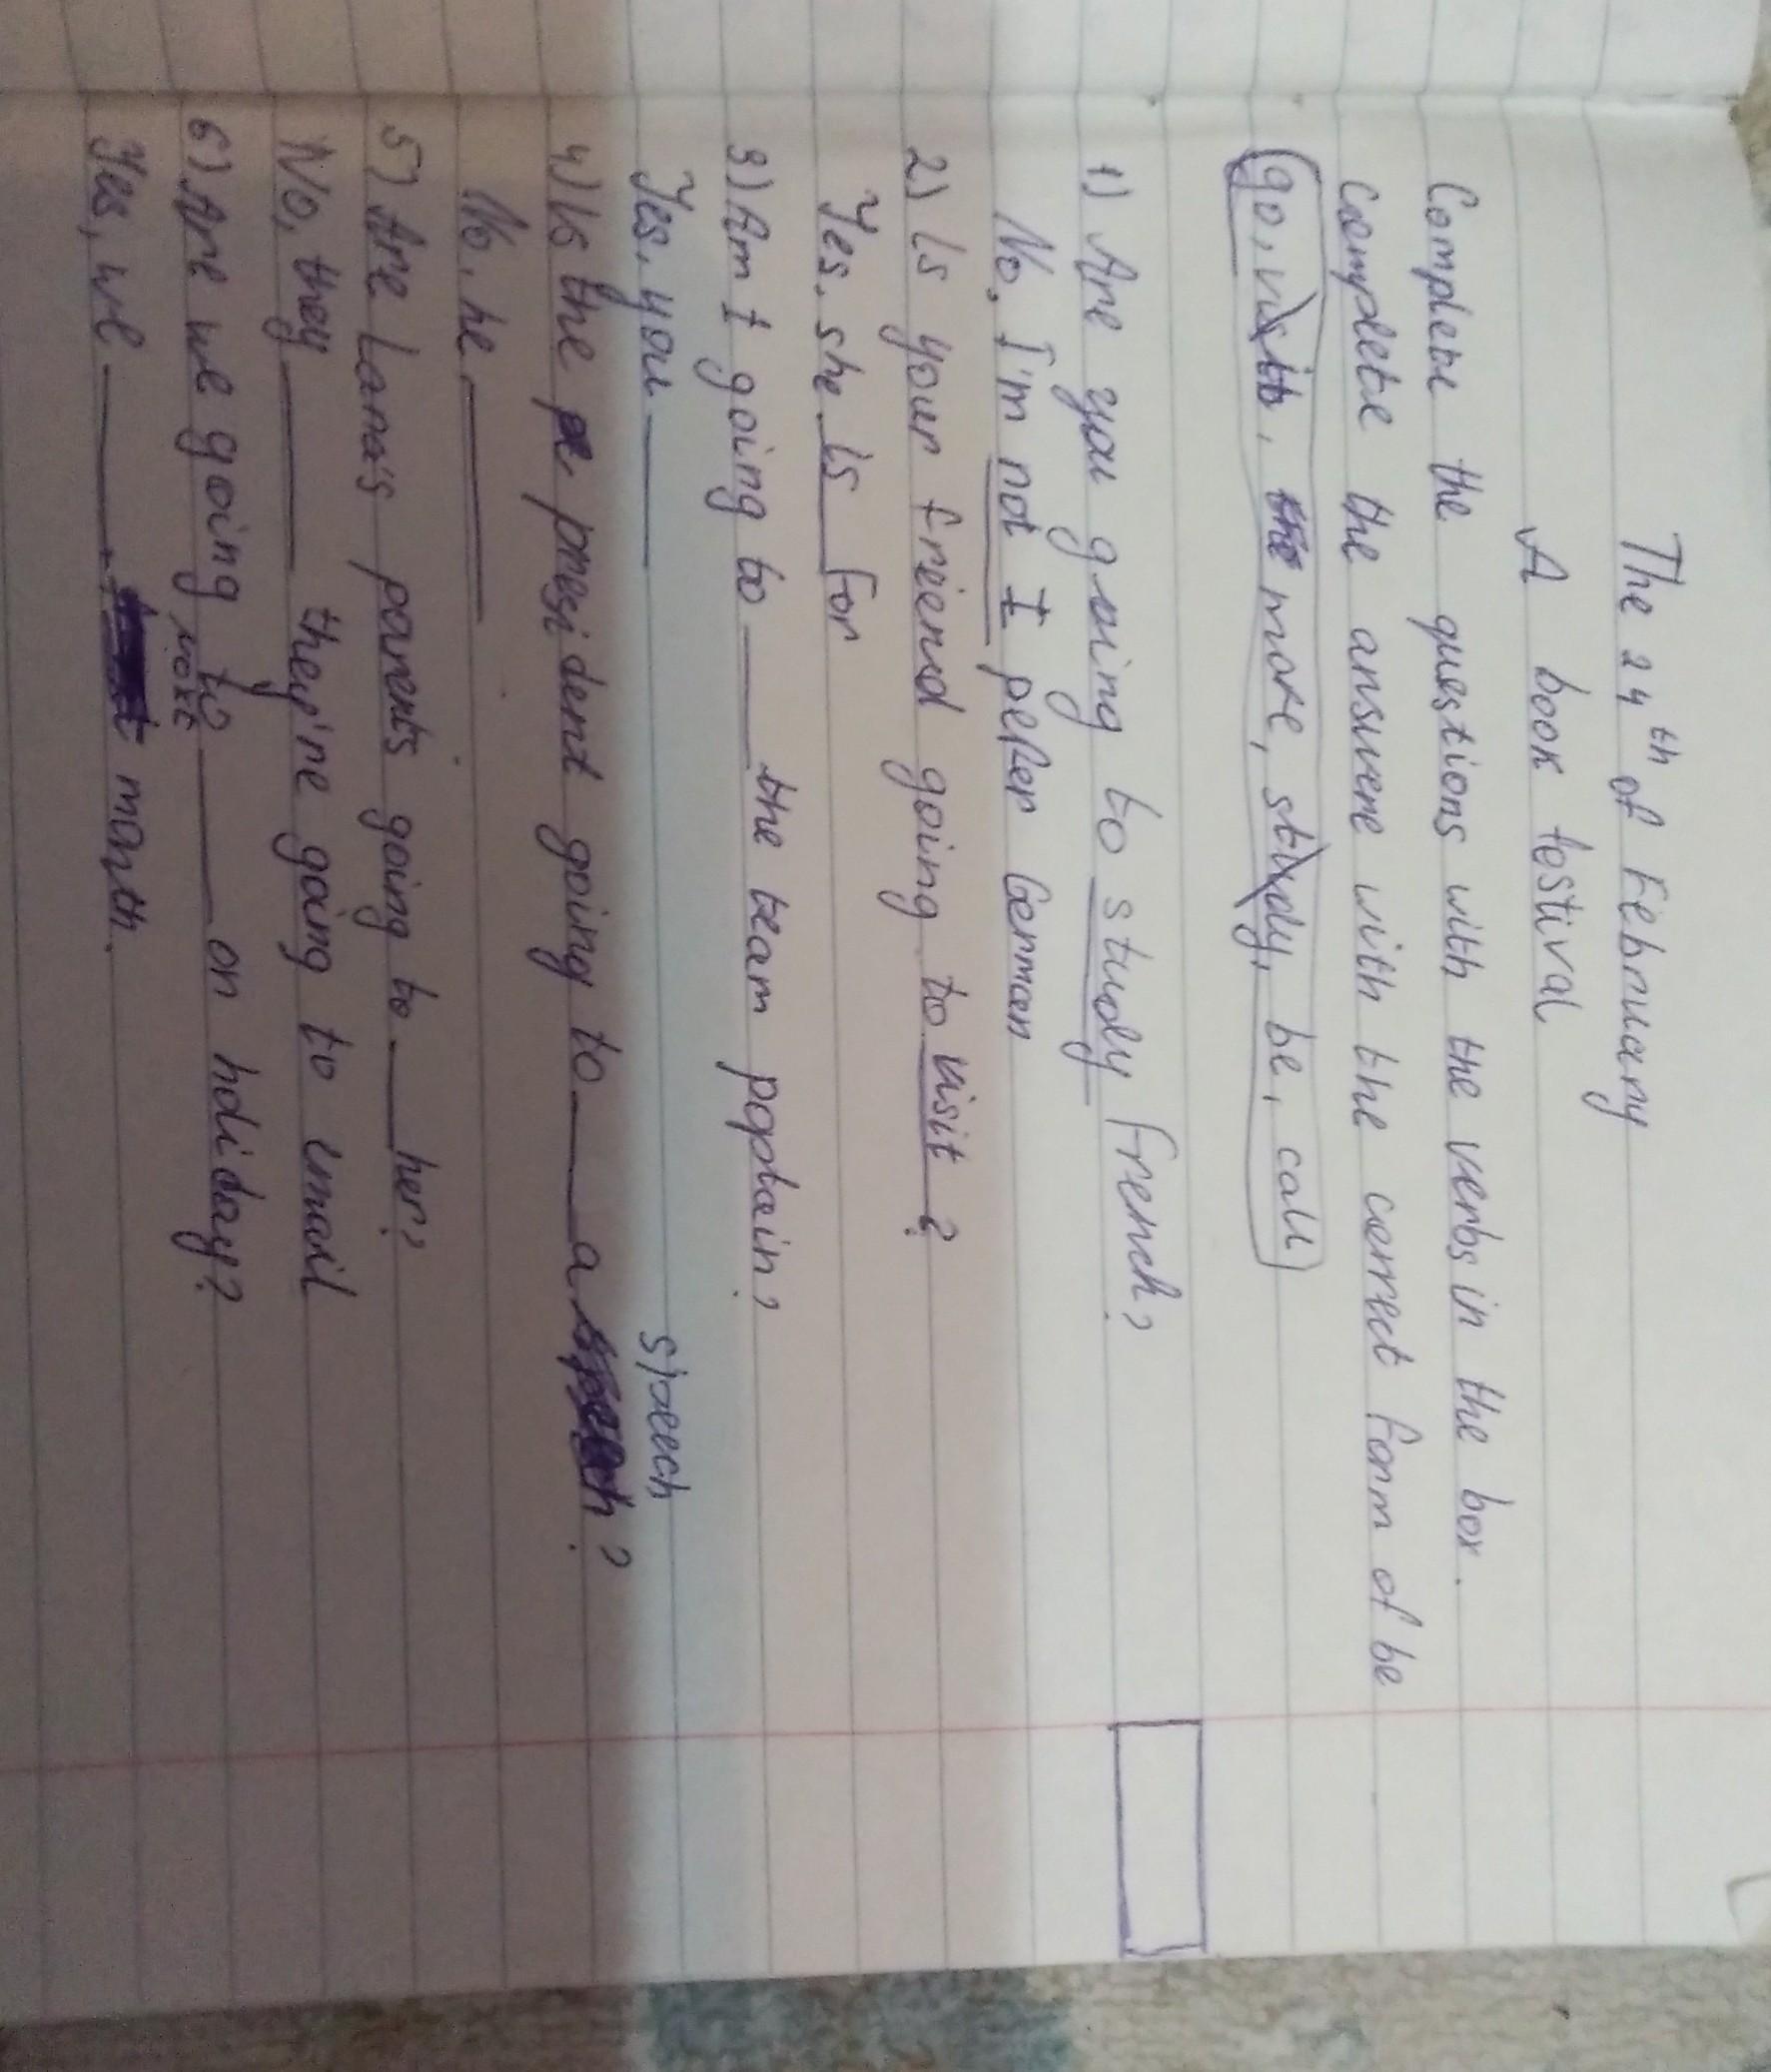 The 24th of February
A book festival
Complete the questions with the verbs in the box.
Complete the answere with the correct form of be
go, visit, make, study, be, call
1) Are you going to study French?
No, I'm not I pefer German
2) Is your friend going to visit ?
Yes, she is for
3) Am I going to ___ the team poptain?
Yes, you ___
speech
4) Is the president going to ___ a ?
No, he ___
5) Are Lana's parents going to ___ her?
No, they ___ they're going to email
6) Are we going to ___ on holiday?
next
Yes, we ___. month.